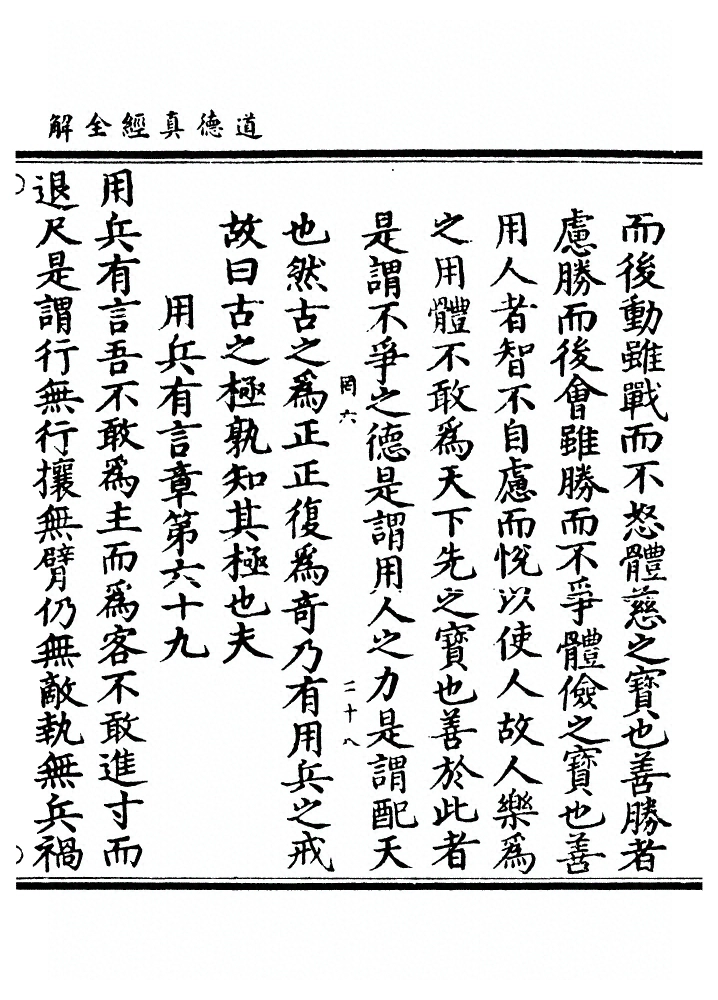 道德真經全解
而後動雖戰而不怒體慈之寶也善勝者
慮勝而後會雖勝而不爭體儉之寶也善
用人者智不自慮而悅以使人故人樂爲
之用體不敢爲天下先之寶也善於此者
是謂不爭之德是謂用人之力是謂配天
罔六
二十八
也然古之爲正正復爲奇乃有用兵之戒
故曰古之極孰知其極也夫
用兵有言章第六十九
用兵有言吾不敢爲主而爲客不敢進寸而
退尺是謂行無行攘無臂仍無敵執無兵禍